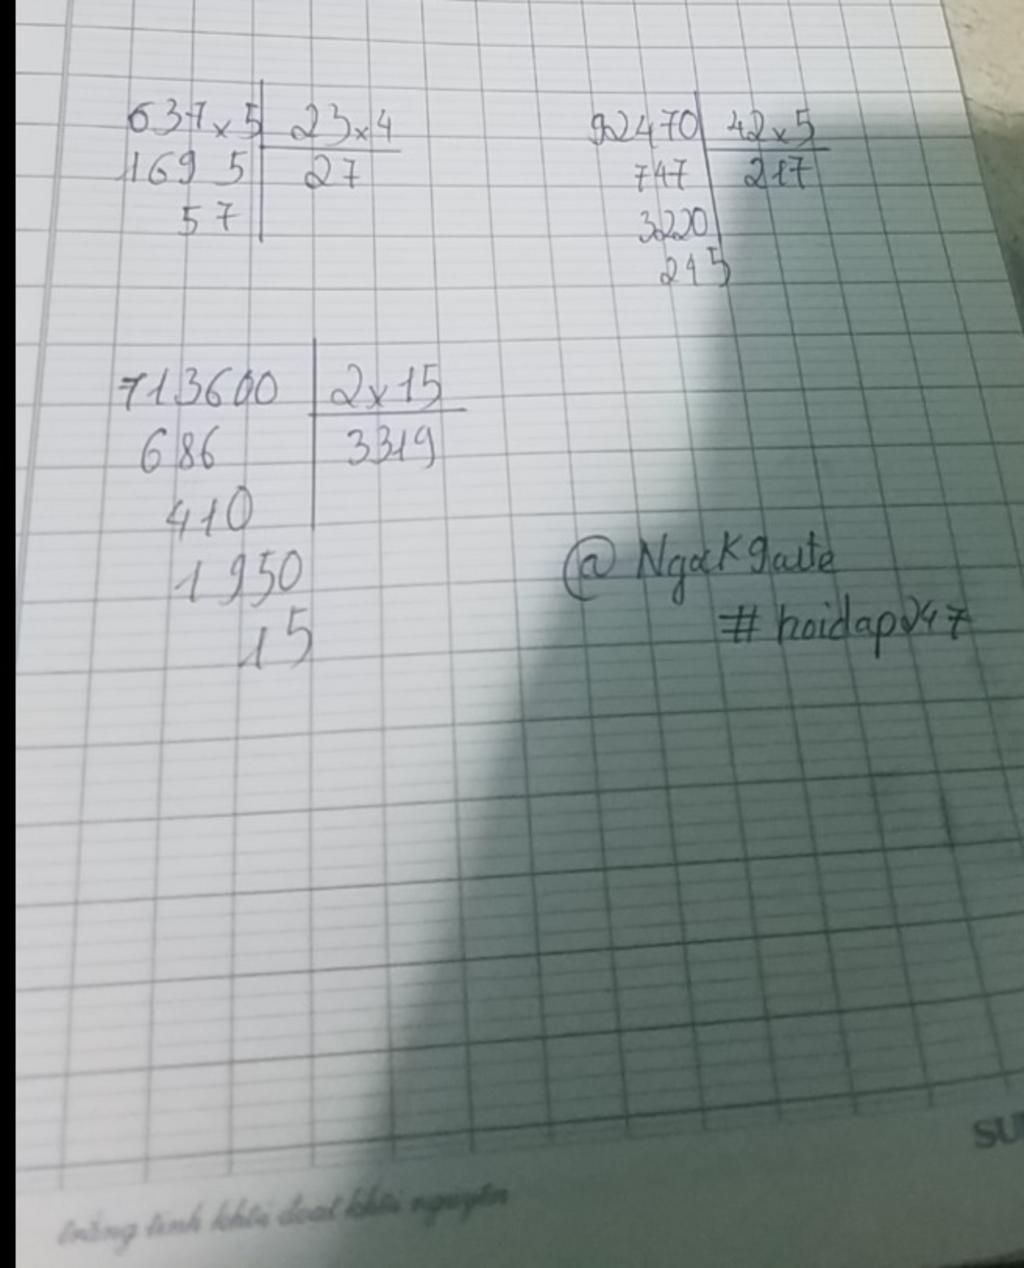 637x5 23x4
1695 27
57
92470 42x5
747 217
3220
245
713600 2x15
686 3319
410
1950
15
@
# hoidap247
SU